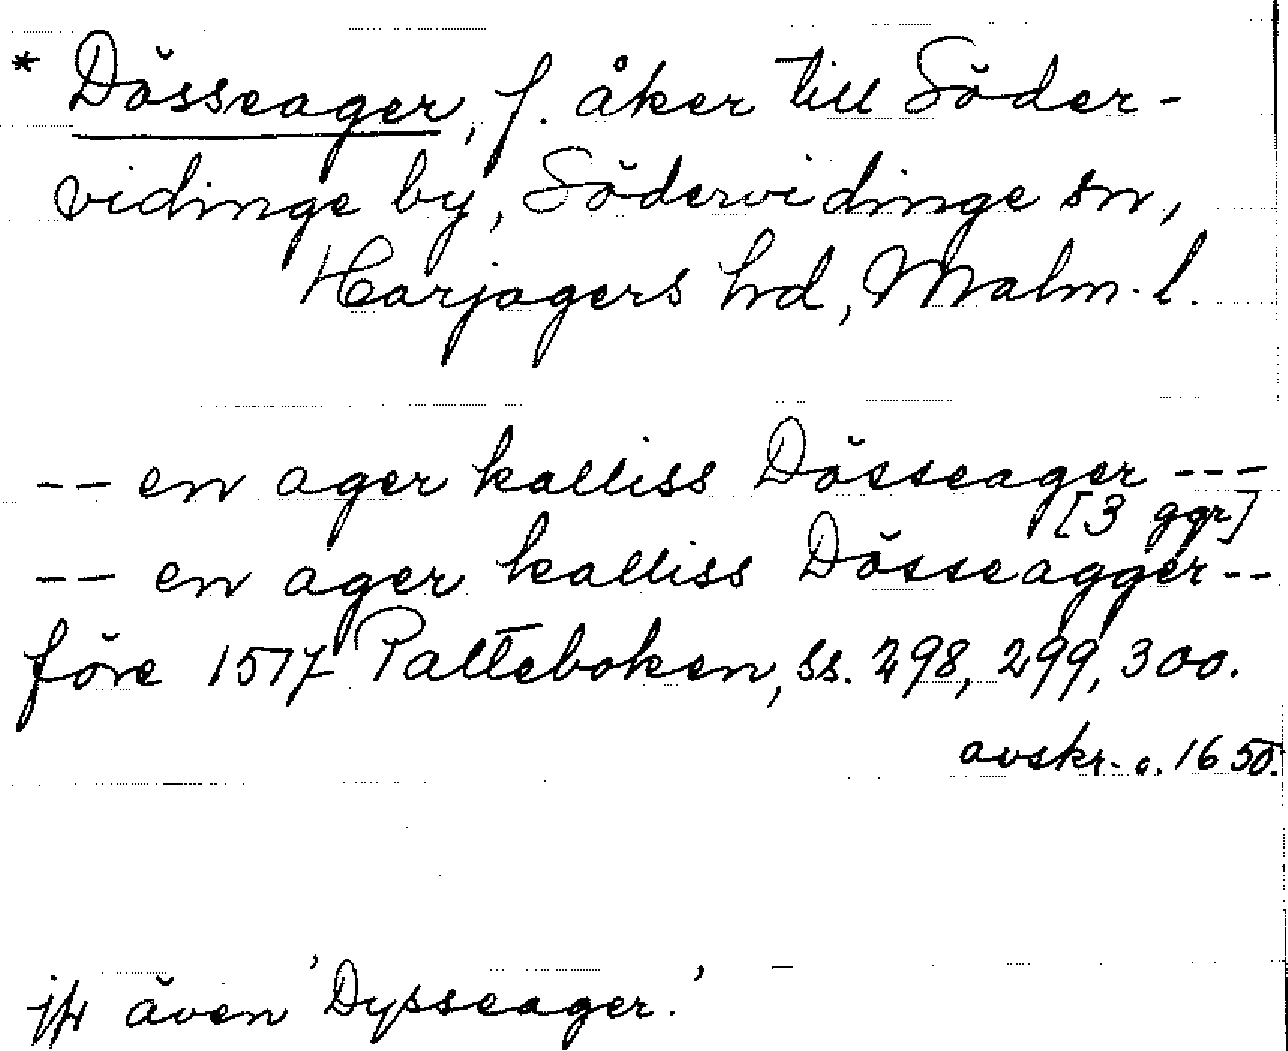 * Dösseager, f. åker till Söder-
vidinge by, Södervidinge sn,
Harjagers hrd, Malm. l.
-- en ager kalliss Dösseager ---
[3 ggr]
-- en ager kalliss Dösseagger --
före 1517 Palteboken, ss. 298, 299, 300.
avskr. o. 1650.
jfr även 'Dysseager.'